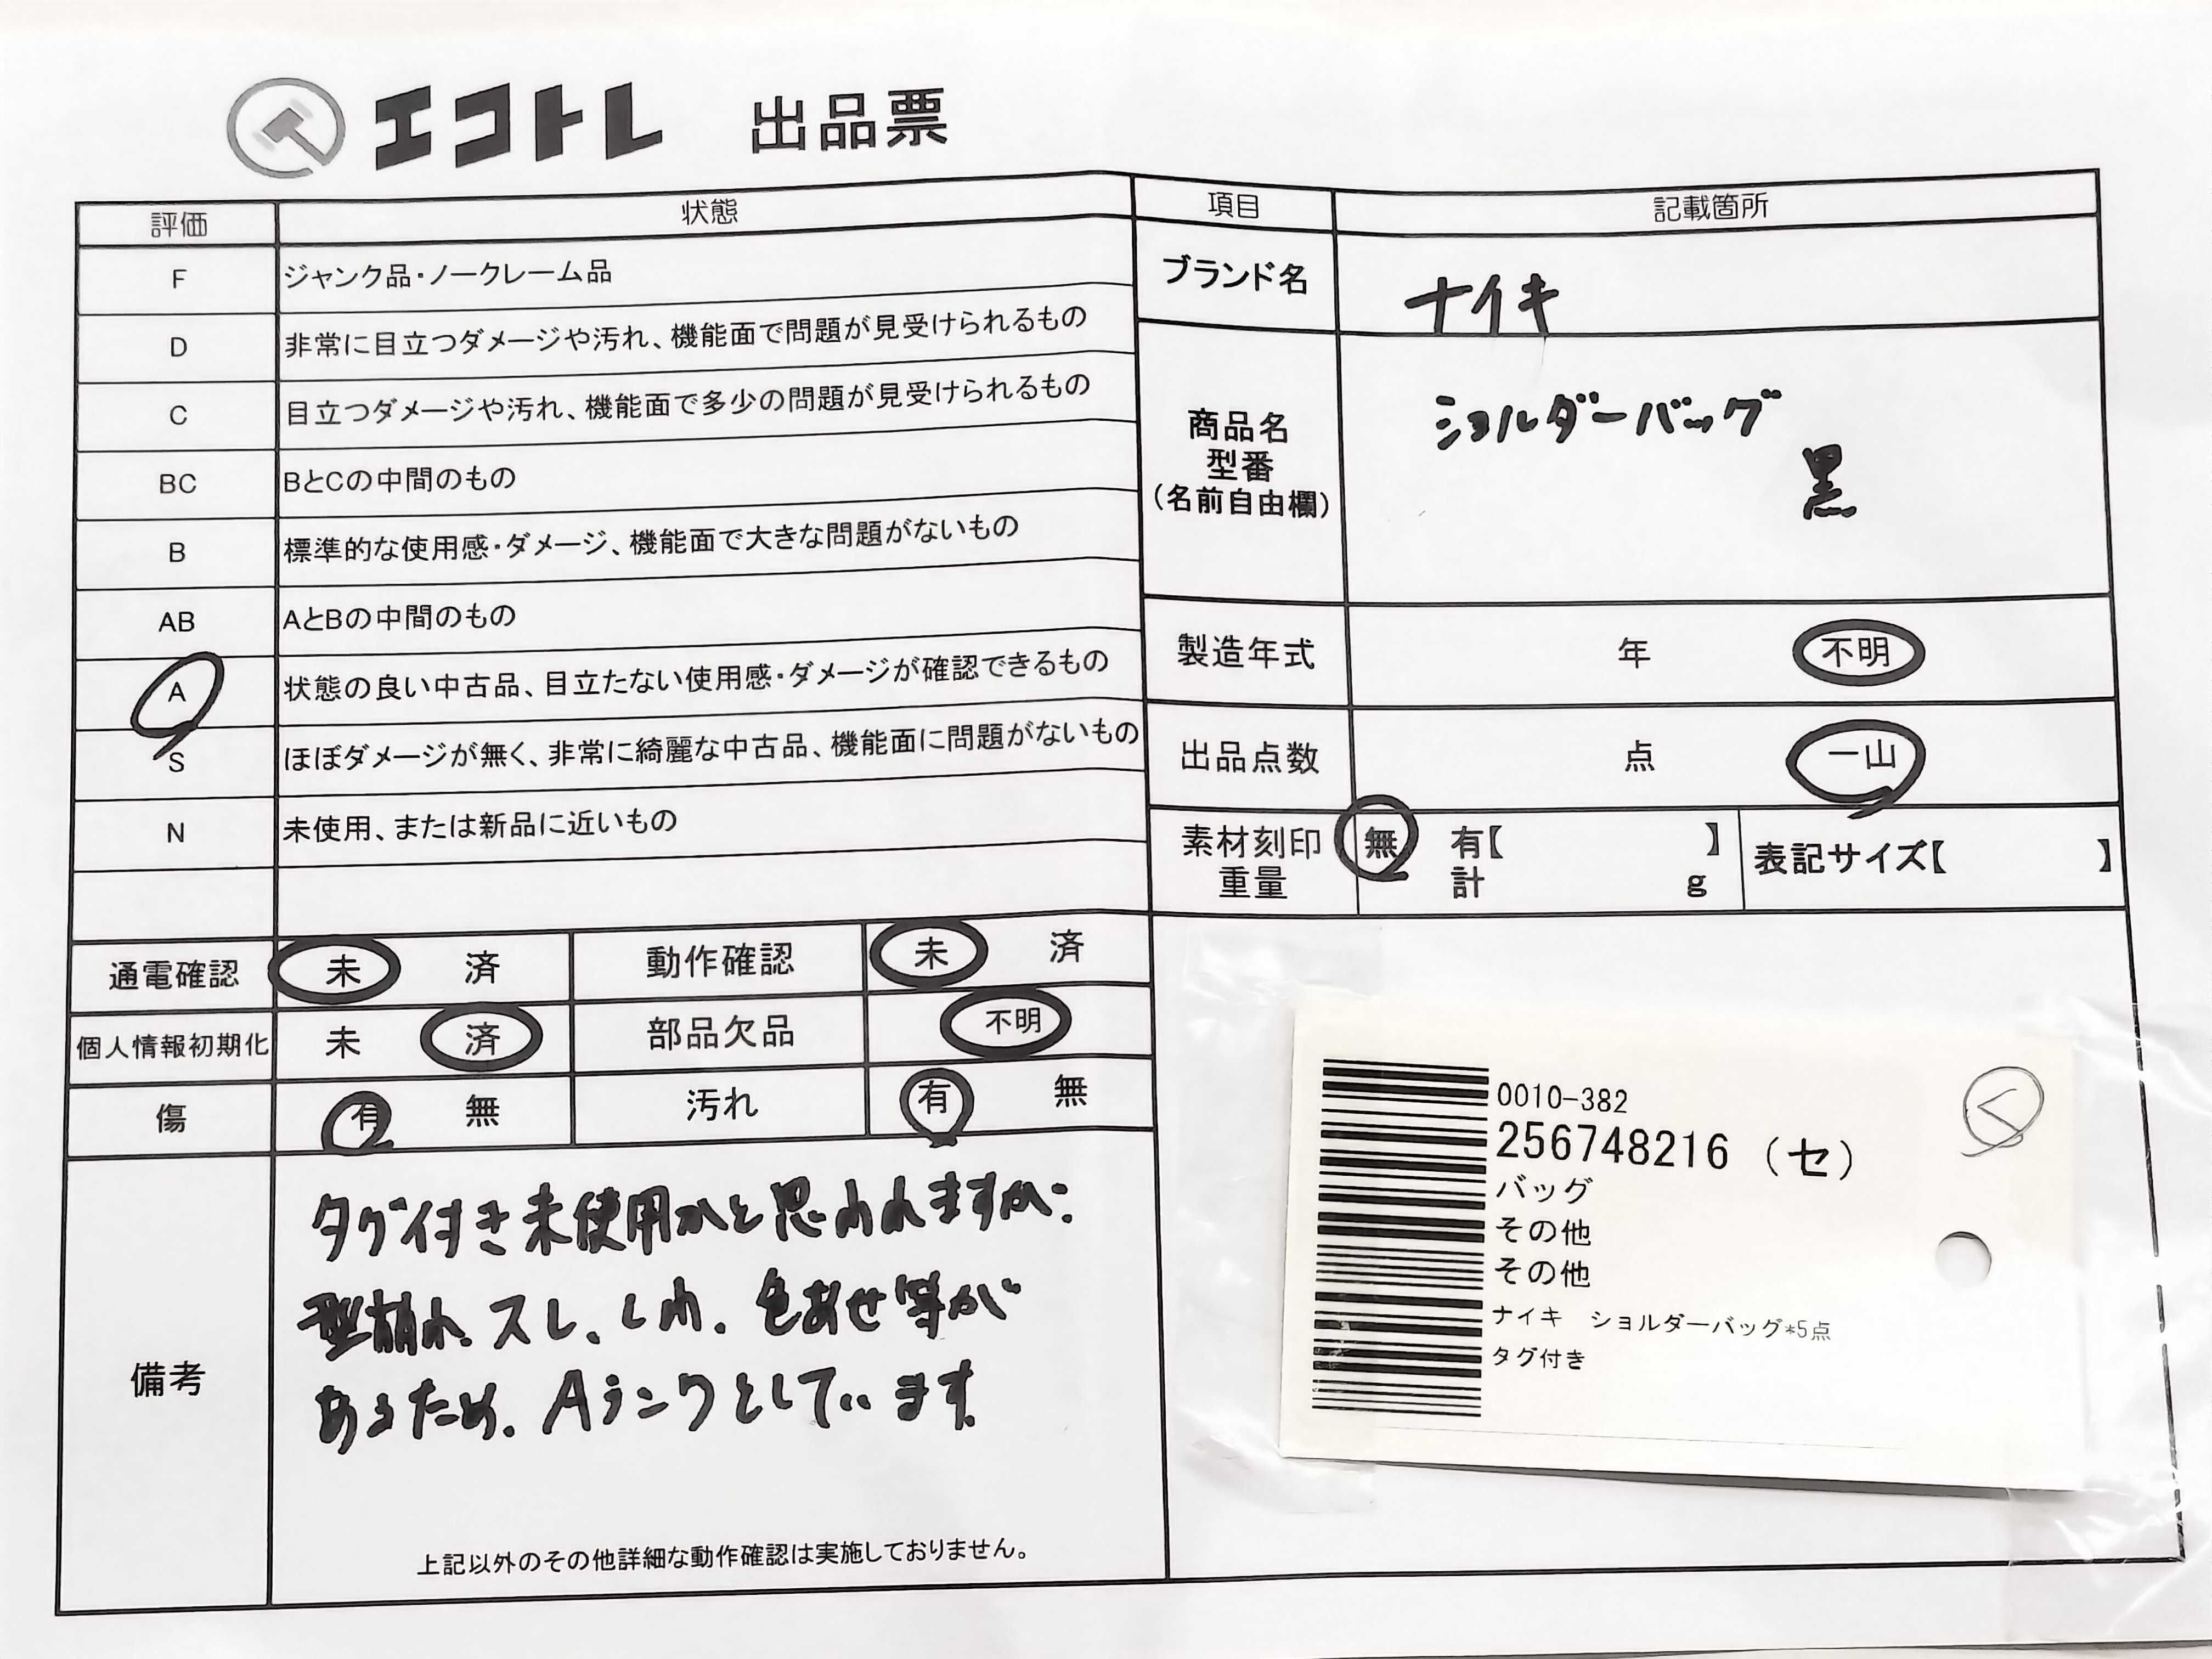 エコトレ 出品票
評価 状態
F ジャンク品・ノークレーム品
D 非常に目立つダメージや汚れ、機能面で問題が見受けられるもの
C 目立つダメージや汚れ、機能面で多少の問題が見受けられるもの
BC BとCの中間のもの
B 標準的な使用感・ダメージ、機能面で大きな問題がないもの
AB AとBの中間のもの
A 状態の良い中古品、目立たない使用感・ダメージが確認できるもの
S ほぼダメージが無く、非常に綺麗な中古品、機能面に問題がないもの
N 未使用、または新品に近いもの
通電確認 未 済 動作確認 未 済
個人情報初期化 未 済 部品欠品 不明
傷 有 無 汚れ 有 無
備考
タグ付き未使用かと思われますが、
型崩れ、スレ、シワ、色あせ等が
あるため、Aランクとしています
上記以外のその他詳細な動作確認は実施しておりません。
項目 記載箇所
ブランド名 ナイキ
商品名
型番
(名前自由欄)
ショルダーバッグ
黒
製造年式 年 不明
出品点数 点 一山
素材刻印 無 有【 】
重量 計 g
表記サイズ【 】
0010-382
256748216 (セ)
バッグ
その他
その他
ナイキ ショルダーバッグ*5点
タグ付き